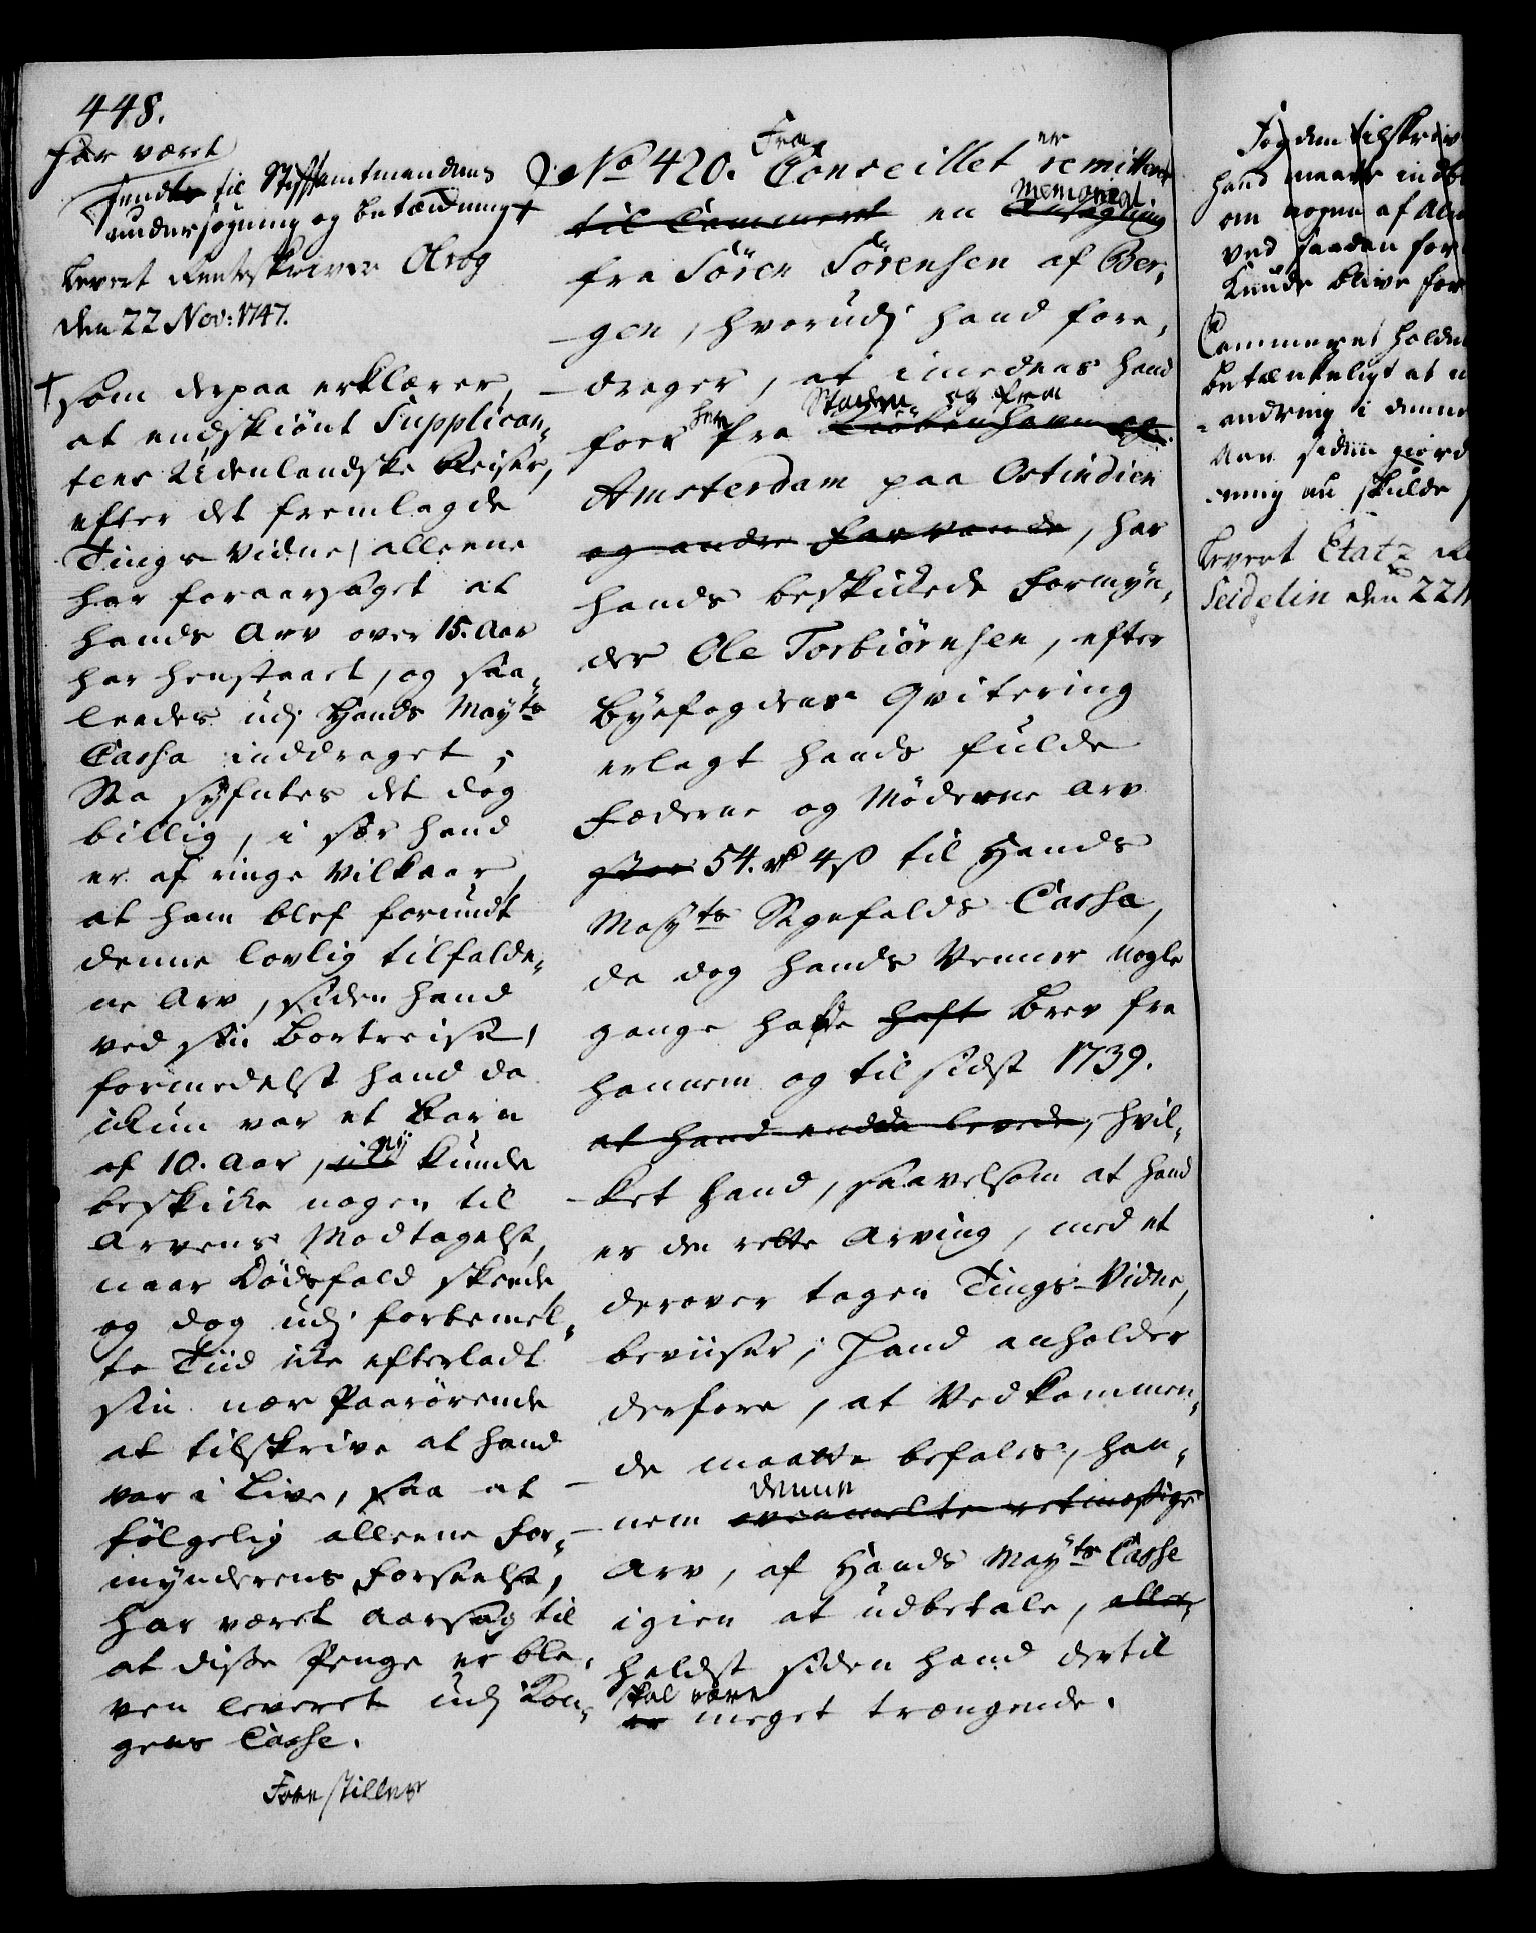 448.
har været
sendt til Stiftamtmandens
undersøgning og betænkning +
Levert Renteskriver Olrog
den 22 Nov: 1747.
+ som derpaa erklærer,
at endskiönt Supplican-
tens Udenlandske Reiser,
efter det fremlagde
Tings Vidne, alleene
har foraarsaget at
hands Arv over 15. Aar
har henstaaet, og saa-
leedes udj Hands Mayts
Cassa inddraget,
Saa syntes det dog
billig, i sær hand
er af ringe Vilkaar,
at ham blef forundt
denne lovlig tilfalde-
ne Arv, siden hand
ved sin bortreise,
formedelst hand da
ikun var et Barn
af 10. Aar, ikke ej kunde
beskikke nogen til
Arvens Modtagelse,
naar Dødsfald skeede,
og dog udj forbemel-
te Tiid ikke efterladt
sin nær Paarörende
at tilskrive at hand
var i Live, saa at
følgelig alleene For-
mynderens Forseelse,
har været Aarsag til
at disse Penge er ble-
ven leveret udj Kon-
gens Casse.
Forestilles
No 420. Fra Conseillet er remitteret
til Cammeret en Ansøgning Memorial
fra Sören Sörensen af Ber-
gen, hvorudj hand fore-
drager, at imedens hand
foer her fra Kiöbenhavn og Staden og fra
Amsterdam paa Ostindien
og andre Farvande, har
hands beskikkede Formyn-
der Ole Torbiörnsen, efter
Byefogdens Qvitering
erlagt hands fulde
Fæderne og Möderne Arv
54. rd 4 s til Hands
Mayts Sagefalds Cassa,
da dog hands Venner nogle
gange hafde haft Brev fra
hannem og til sidst 1739.
at hand endda levede, hvil-
ket hand, saavelsom at hand
er den rette Arving, med et
derover tagen Tings-Vidne,
beviiser; Hand anholder
derfore, at Vedkommen-
de maatte befales, han-
nem ovenmelte retmæssige denne
Arv, af Hands Mayts Casse
igien at udbetale, aller
heldst siden hand dertil
er skal være meget trængende.
Fogden tilskriv
hand maatte indb
om nogen af Al
ved saadan for
Kunde blive for
Cammeret holde
betænkeligt at
andring i denne
Aar siden giord
ning nu skulde
Levert Etatz R
Seidelin den 22